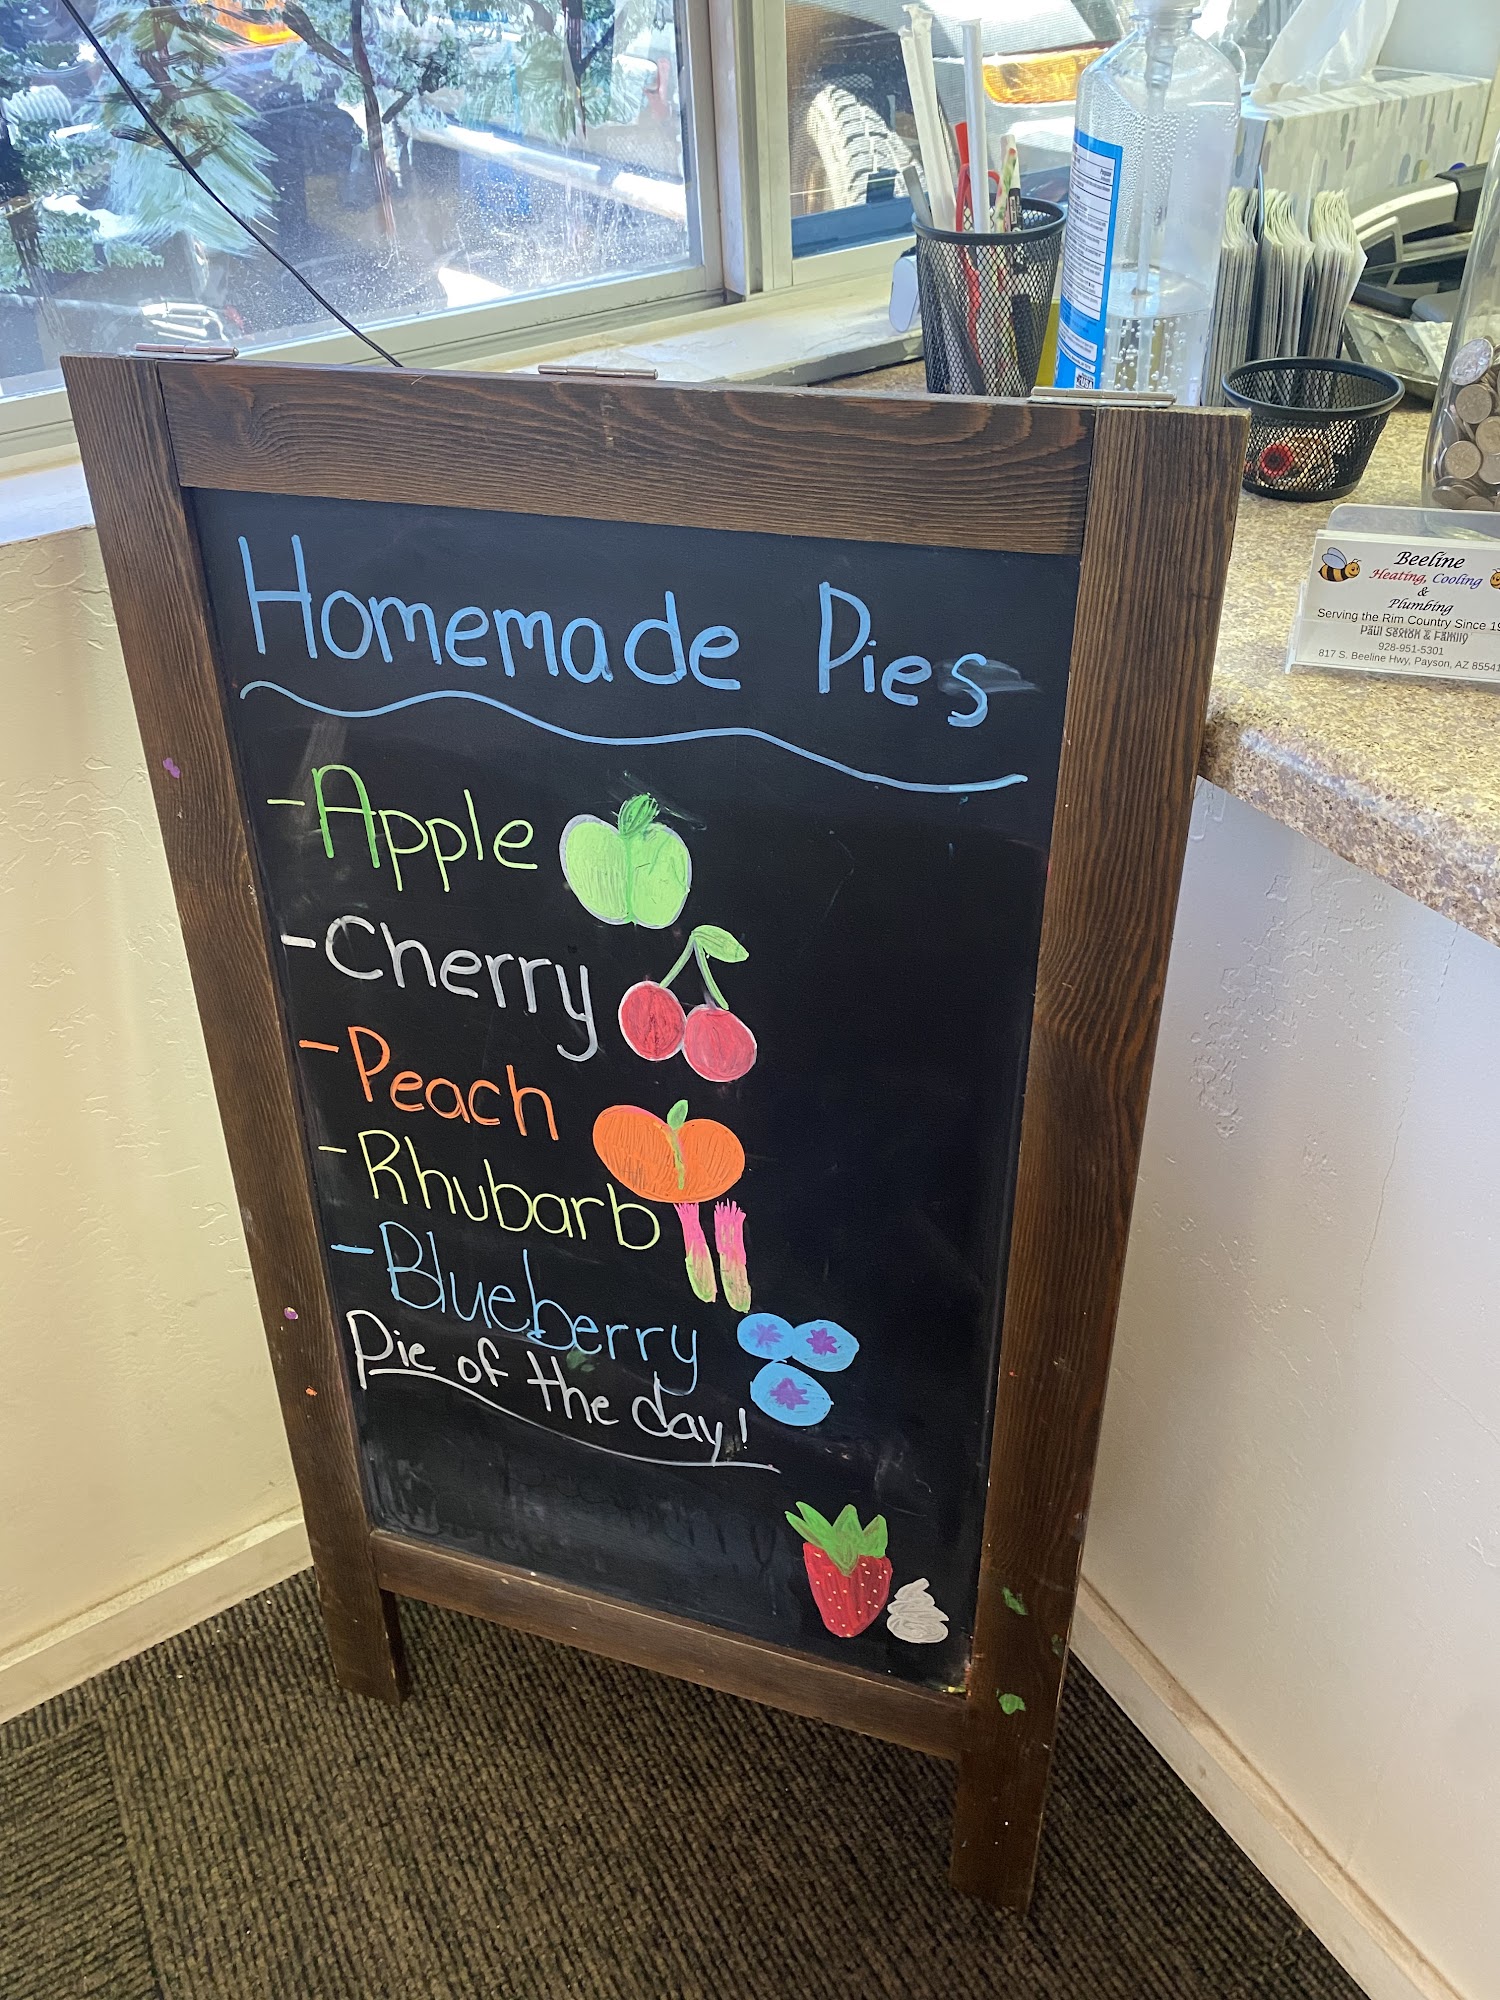 Homemade Pies
- Apple
- Cherry
- Peach
- Rhubarb
- Blueberry
Pie of the day!
Beeline
Heating, Cooling
&
Plumbing
Serving the Rim Country Since 19
Paul Sexton & Family
928-951-5301
817 S. Beeline Hwy, Payson, AZ 85541